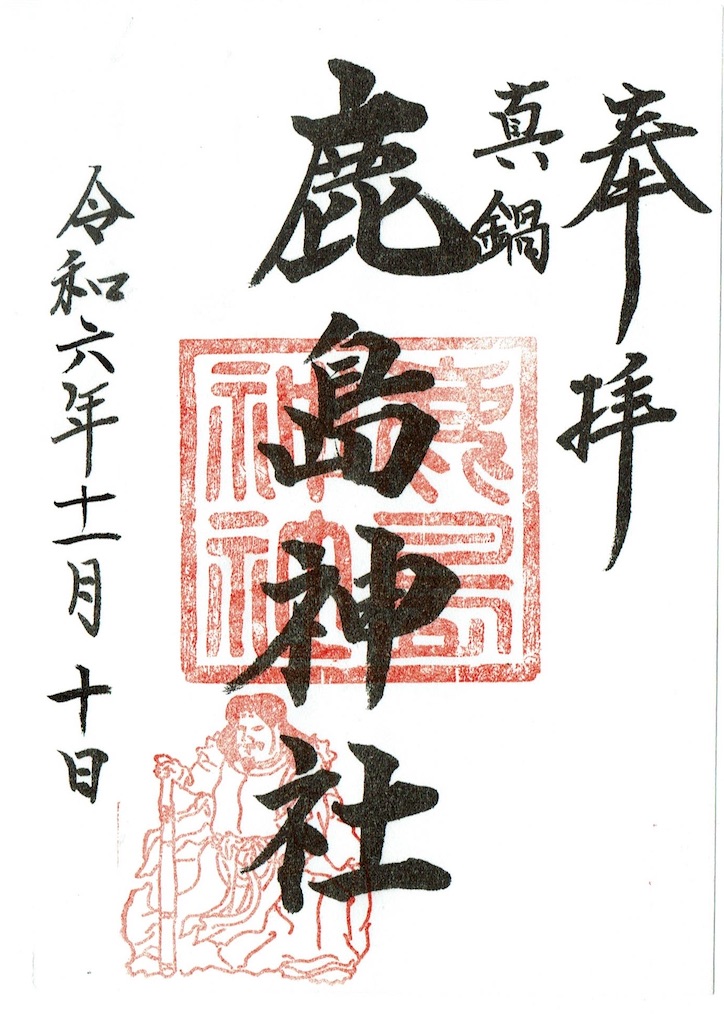 奉拝
真鍋
鹿島神社
鹿島
神社
令和六年十一月十日